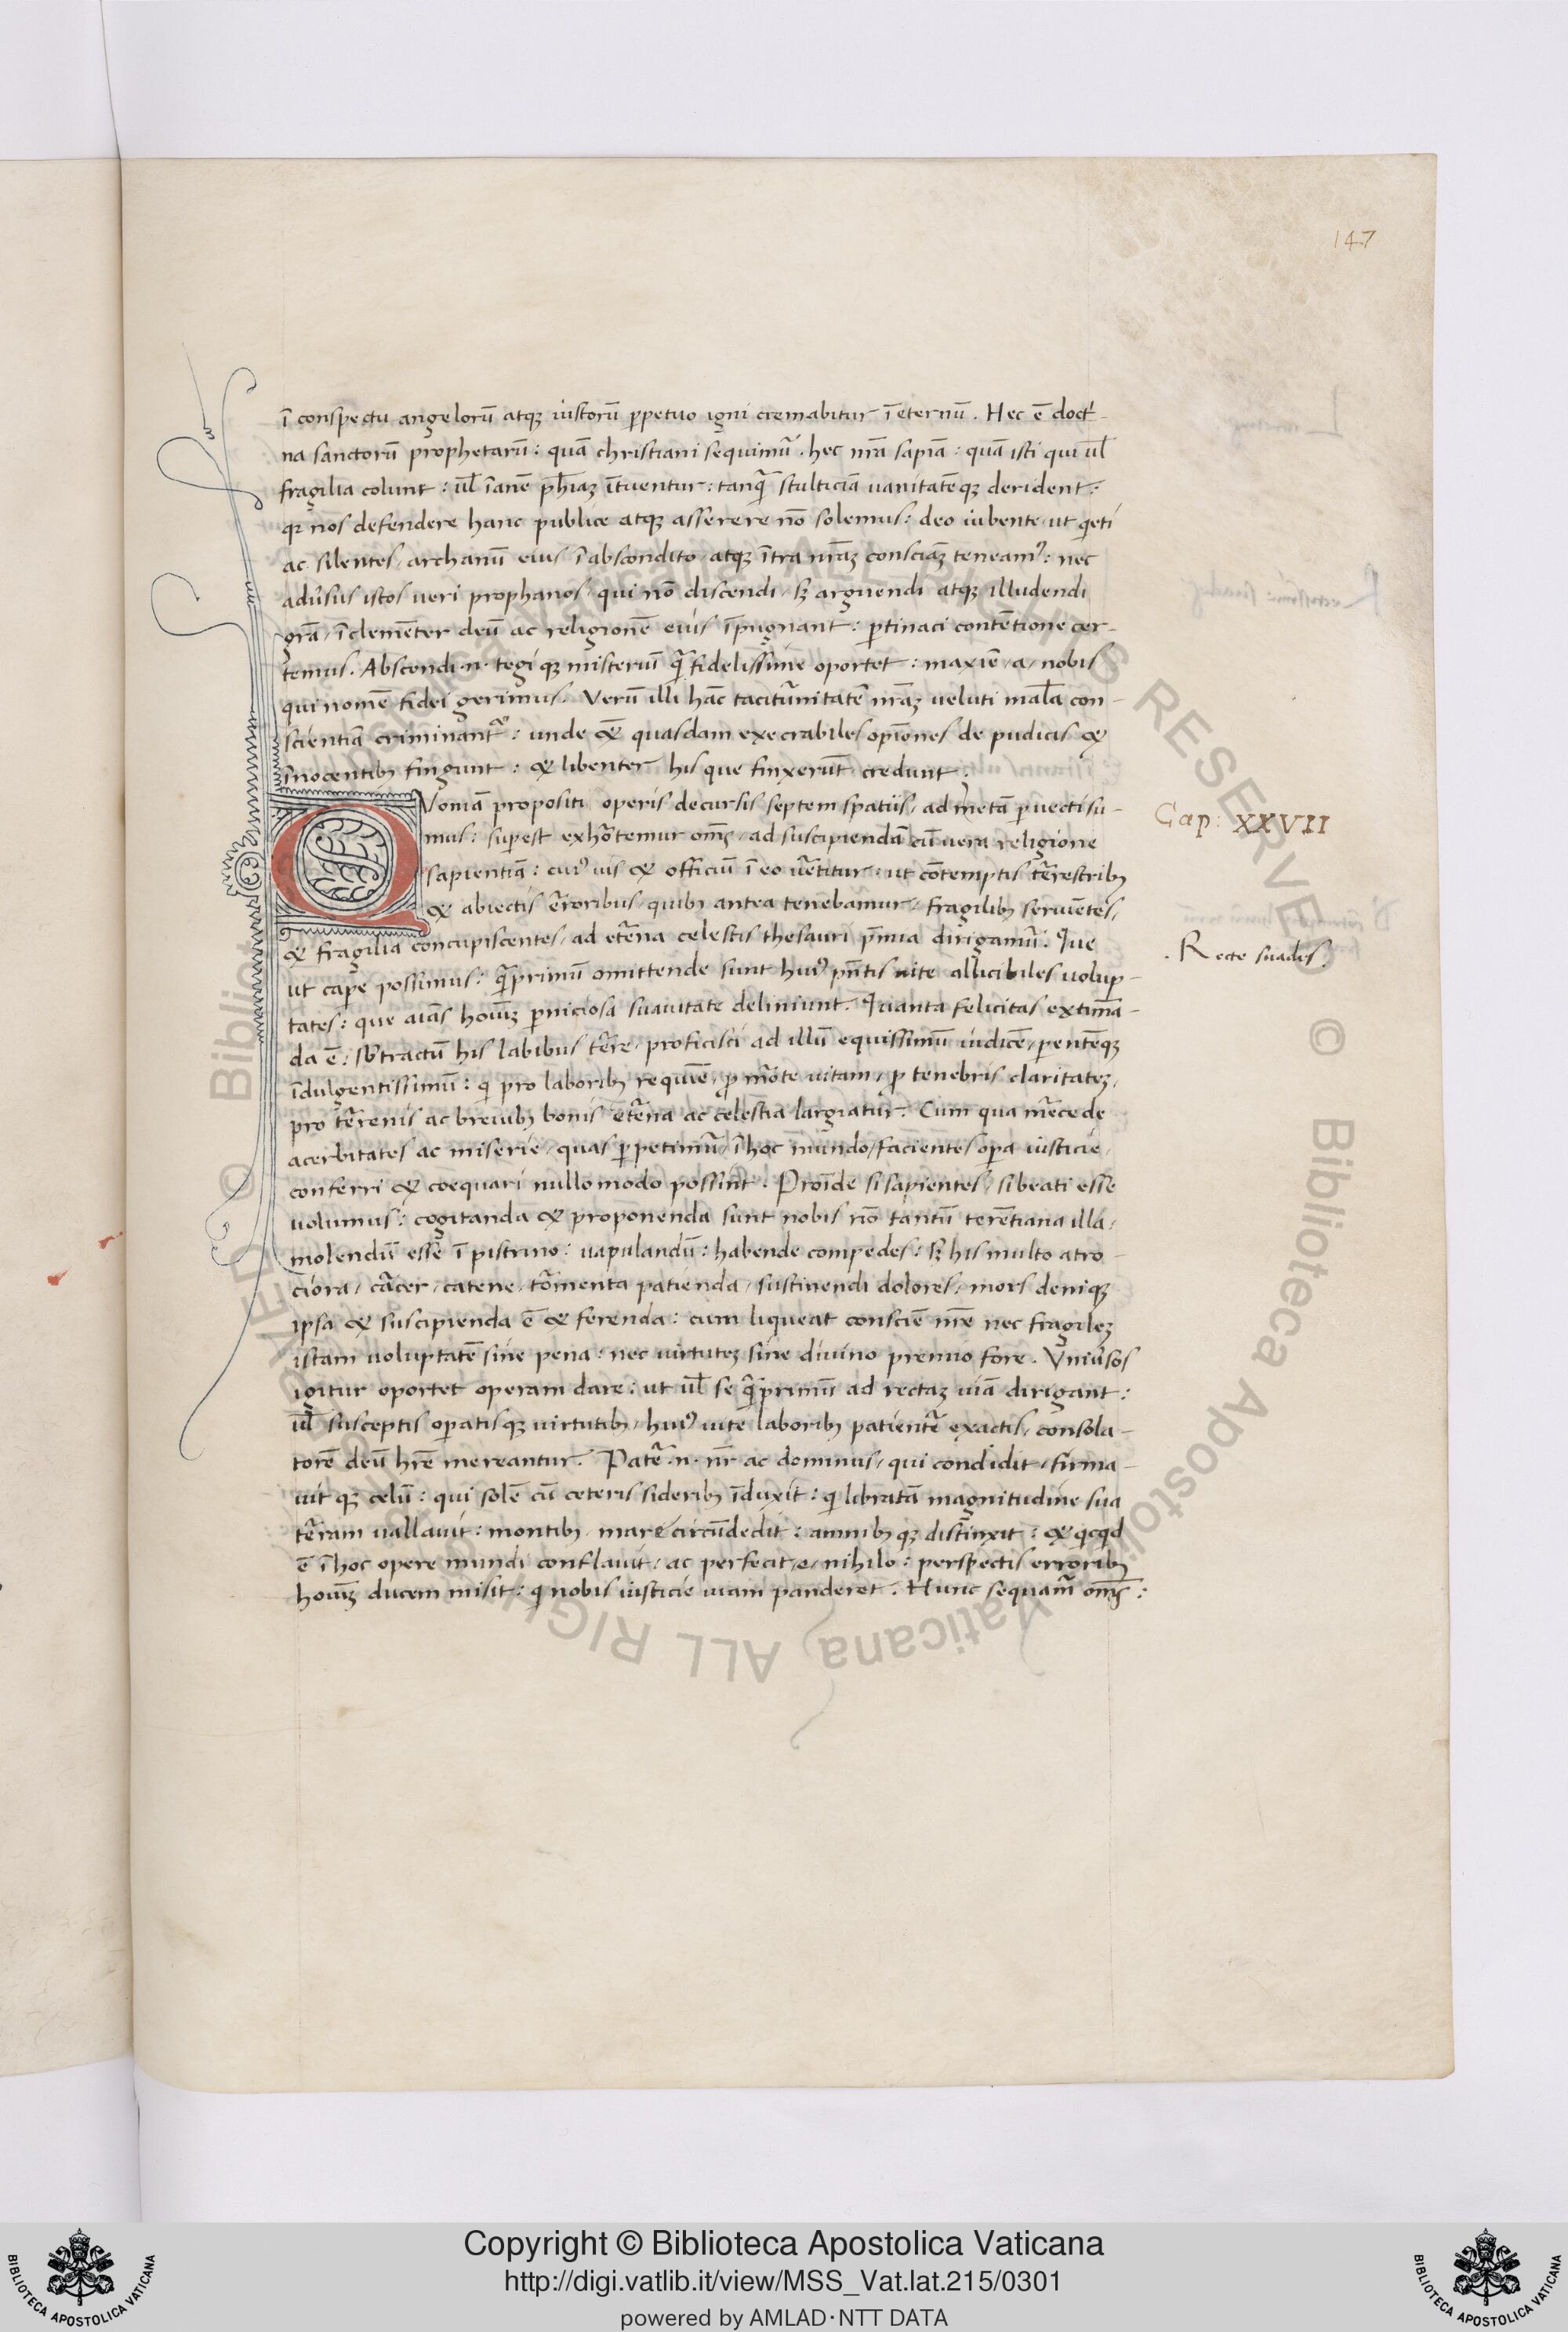 147
ī conspectu angelorū atqꝫ iustorū ꝑpetuo igni cremabitur ī eternū. Hec ē doctⁱ-
na sanctorū prophetarū: quā christiani sequimur̃. hec nr̃a sapiā: quā isti qui ul̄
fragilia colunt: ul̄ īanē ph̄iaꝫ ītuentur: tanqᷓ stulticiā uanitatēqꝫ derident:
qꝛ nos defendere hanc publice atqꝫ asserere nō solemus: deo iubente ut qⁱeti
ac silentes / archanū eius / ī abscondito / atqꝫ ītra nr̃aꝫ consciaꝫ teneamꝰ: nec
adūsus istos ueri prophanos / qui nō discendi / sꝫ arguendi atqꝫ illudendi
gr̃a / īclemēter deū ac religionē eius īpugnant: ꝑtinaci contētione cer-
temus. Abscondi .n. tegi qꝫ misteriū qᷓ fidelissime oportet: maxiē / a / nobis
qui nomē fidei gerimus. Verū illi hāc taciturnitatē nr̃aꝫ ueluti mal̄a con-
scientiā criminantᷣ: unde & quasdam execrabiles opīones de pudicis &
īnocentibꝫ fingunt: & libenter his que finxerūt credunt:
Voniā propositi operis decursis septem spatiis / ad metā ꝑuecti su-
mus: suꝑest exhōtemur om̄s / ad suscipiendā cū uera religione
sapientiā: cuiꝰ uis & officiū ī eo uertitur: ut cōtemptis tēr̃estribꝫ
& abiectis er̃roribus / quibꝫ antea tenebamur / fragilibꝫ seruiētes /
& fragilia concupiscentes / ad etr̃na celestis thesauri p̄mia dirigamur̃. Que
ut caꝑe possimus: qᷓprimū omittende sunt huiꝰ pn̄tis uite allicibiles uolup-
tates: que aīas hoīuꝫ ꝑniciosa suauitate deliniunt. Quanta felicitas extimā-
da ē: sbtractū his labibus tēre / proficisci ad illū equissimū iudicē / parentēqꝫ
īdulgentissimū: qⁱ pro laboribꝫ requiē / ꝓ mōte uitam / ꝓ tenebris claritateꝫ /
pro tēr̃enis ac breuibꝫ bonis etr̃na ac celestia largiatur. Cum qua mēcede
acerbitates ac miserie / quas ꝑpetimur̃ / ī hoc mundo / facientes oꝑa iusticie /
conferri & coequari nullo modo possint. Proīde si sapientes / si beati esse
uolumus: cogitanda & proponenda sunt nobis nō tantū terētiana illa /
molendū esse ī pistrino: uapulandū: habende compedes: sꝫ his multo atro-
ciora / cācer / catene / tōmenta patienda / sustinendi dolores / mors deniqꝫ
ipsa & suscipienda ē & ferenda: cum liqueat consciē nr̃e nec fragileꝫ
istam uoluptatē sine pena: nec uirtuteꝫ sine diuino premio fore. Vniūsos
igitur oportet operam dare: ut ul̄ se qᷓprimū ad rectaꝫ uiā dirigant:
ul̄ susceptis oꝑatisqꝫ uirtutibꝫ / huiꝰ uite laboribꝫ patientr̃ exactis / consola-
torē deū hr̄e mereantur. Patr̃ .n. nr̄ ac dominus / qui condidit / firma-
uit qꝫ celū: qui solē cū ceteris sideribꝫ īduxit: qⁱ libratā magnitudine sua
tēr̃am uallauit: montibꝫ / mare circūdedit: amnibꝫ qꝫ distinxit: & qⁱcqⁱd
ē ī hoc opere mundi conflauit / ac perfecit / e / nihilo: perspectis erroribꝫ
hoīuꝫ ducem misit: qⁱ nobis iusticie uiam panderet. Hunc sequamur̃ om̄s:
Cap: XXVII
. Recte suades.
Copyright © Biblioteca Apostolica Vaticana
http://digi.vatlib.it/view/MSS_Vat.lat.215/0301
powered by AMLAD·NTT DATA
BIBLIOTECA APOSTOLICA VATICANA
BIBLIOTECA APOSTOLICA VATICANA